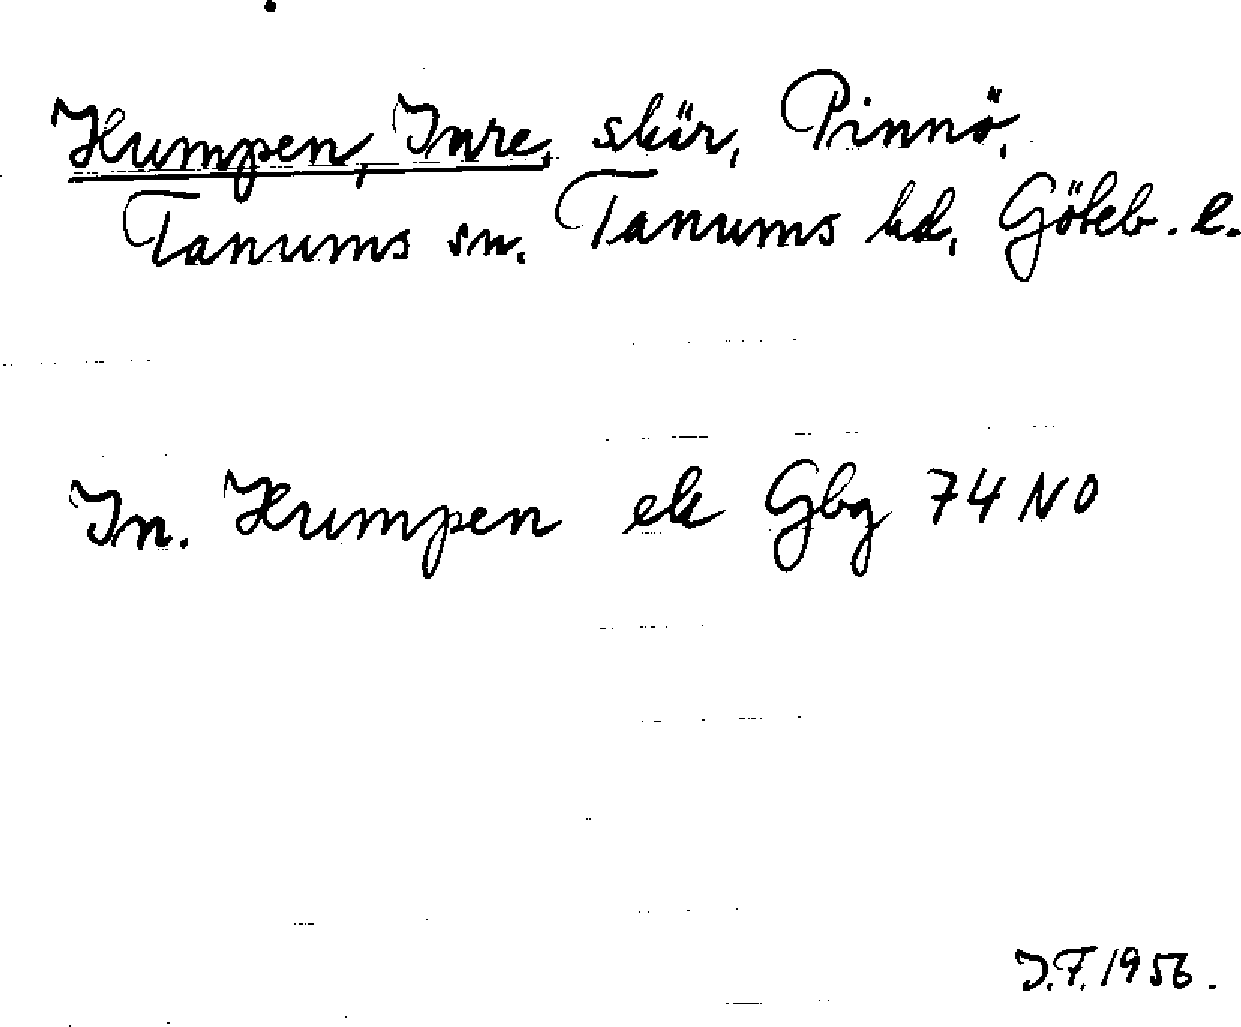 Humpen, Inre, skär, Pinnö,
Tanums sn. Tanums hd, Göteb. l.
In. Humpen ek Gbg 74 NO
J.F. 1956.